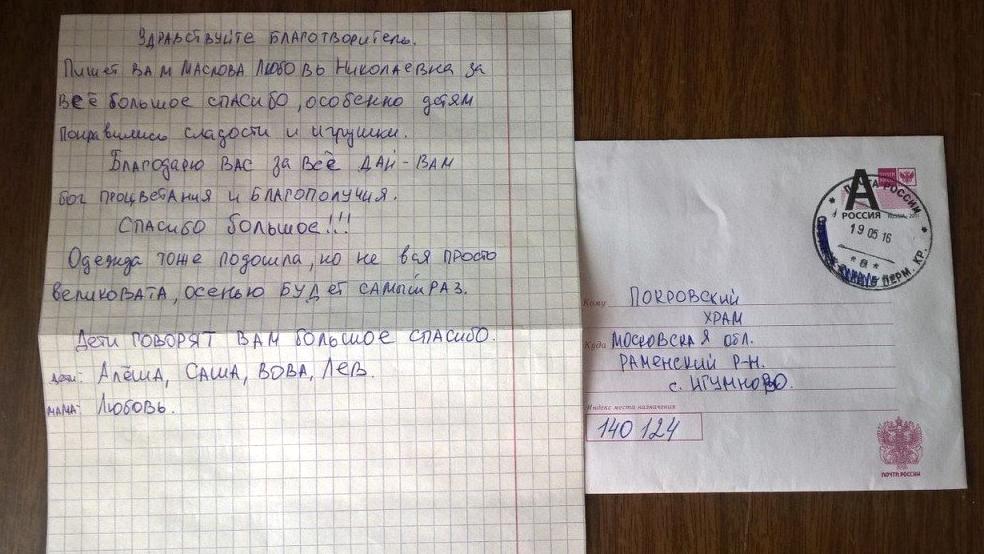 Здравствуйте благотворитель.
Пишет вам Маслова Любовь Николаевна за
всё большое спасибо, особенно детям
понравились сладости и игрушки.
Благодарю вас за всё дай-вам
бог процветания и благополучия.
Спасибо большое!!!
Одежда тоже подошла, но не вся просто
великовата, осенью будет самый раз.
Дети говорят вам большое спасибо.
дети: Алёша, Саша, Вова, Лев.
мама: Любовь.
А
РОССИЯ
ПОЧТА РОССИИ
19 05 16
ПЕРМ. КР.
Кому Покровский
храм
Куда Московская обл.
Раменский р-н.
с. Игумново.
Индекс места назначения
140124
ПОЧТА РОССИИ